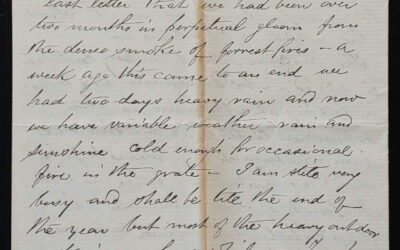 last letter that we had been over
two months in perpetual gloom from
the dense smoke of forrest fires – a
week ago this came to an end we
had two days heavy rain and now
we have variable weather rain and
sunshine cold enough for occasional
fire in the grate – I am still very
busy and shall be till the end of
the year but most of the heavy outdoor